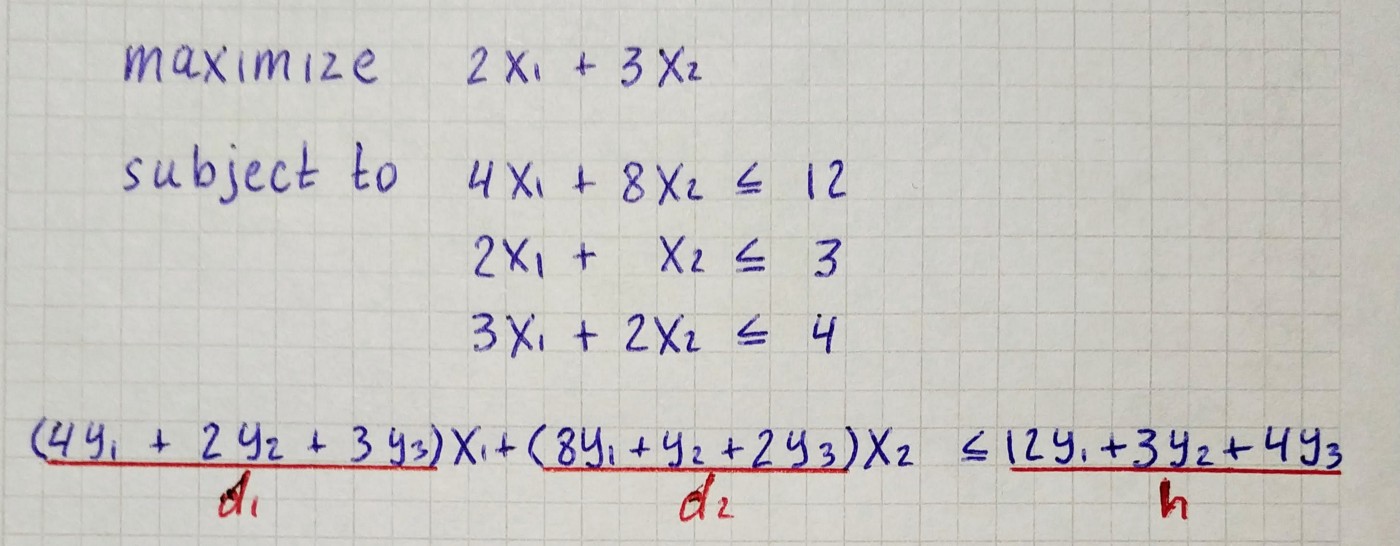 maximize 2x₁ + 3x₂
subject to 4x₁ + 8x₂ ≤ 12
2x₁ + x₂ ≤ 3
3x₁ + 2x₂ ≤ 4
(4y₁ + 2y₂ + 3y₃)x₁ + (8y₁ + y₂ + 2y₃)x₂ ≤ 12y₁ + 3y₂ + 4y₃
d₁ d₂ h